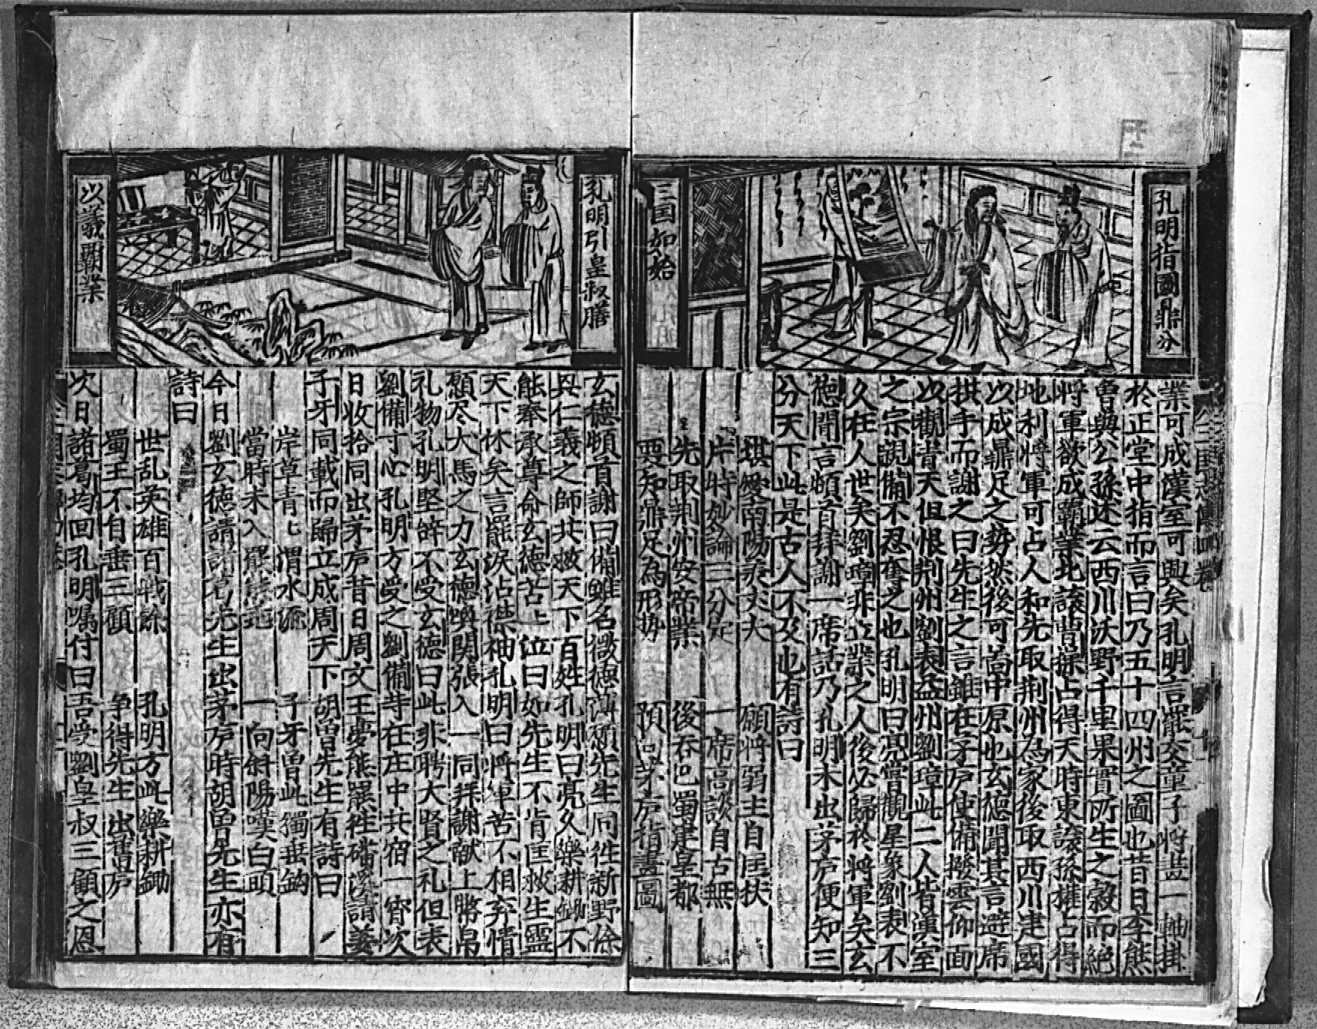 孔明指圖鼎分
三国如始
業可成漢室可興矣孔明言罷交童子將畫一軸掛
於正堂中指而言曰乃五十四州之圖也昔日李熊
曽與公孫述云西川沃野千里果實所生之穀而絕
將軍欲成霸業北讓曹操占得天時東讓孫權占得
地利將軍可占人和先取荆州為家後取西川建國
以成鼎足之勢然後可啚中原也玄德聞其言避席
拱手而謝之曰先生之言雖在茅庐使備撥雲仰面
以覩青天但恨荆州劉表益州劉璋此二人皆漢室
之宗親備不忍奪之也孔明曰亮嘗觀星象劉表不
久在人世矣劉璋非立業之人後必歸於將軍矣玄
德聞言頓首拜謝一席話乃孔明未出茅庐便知三
分天下此是古人不及也有詩曰
堪愛南陽 丈夫 願將弱主自匡扶
片時妙論三分定 一席高談自古無
先取荆州安帝業 後吞巴蜀建皇都
要知鼎足為形势 預 茅庐指畫圖
孔明引皇叔膳
以議霸業
玄德頓首謝曰備雖名微德薄願先生同徃新野除
與仁義之師共救天下百姓孔明曰亮久樂耕鋤不
能奉承尊命玄德苦上泣曰如先生不肯匡救生靈
天下休矣言罷淚沾襟袖孔明曰將軍苦不相弃情
愿尽犬馬之力玄德喚関張入一同拜謝献上幣帛
礼物孔明堅辞不受玄德曰此非聘大賢之礼但表
劉備寸心孔明方受之劉備等在庄中共宿一宵次
日收拾同出茅庐昔日周文王夢熊羆徃磻溪請姜
子牙同載而歸立成周天下胡曽先生有詩曰
岸草青匕渭水流 子牙曽此獨垂鈎
當時未入羆熊兆 一向斜陽嘆白頭
今日劉玄德請諸葛先生出茅庐時胡曽先生亦有
詩曰
世乱英雄百戰餘 孔明方此樂耕鋤
蜀王不自垂三顧 争得先生出舊庐
次日諸葛均回孔明嘱付曰吾受劉皇叔三顧之恩